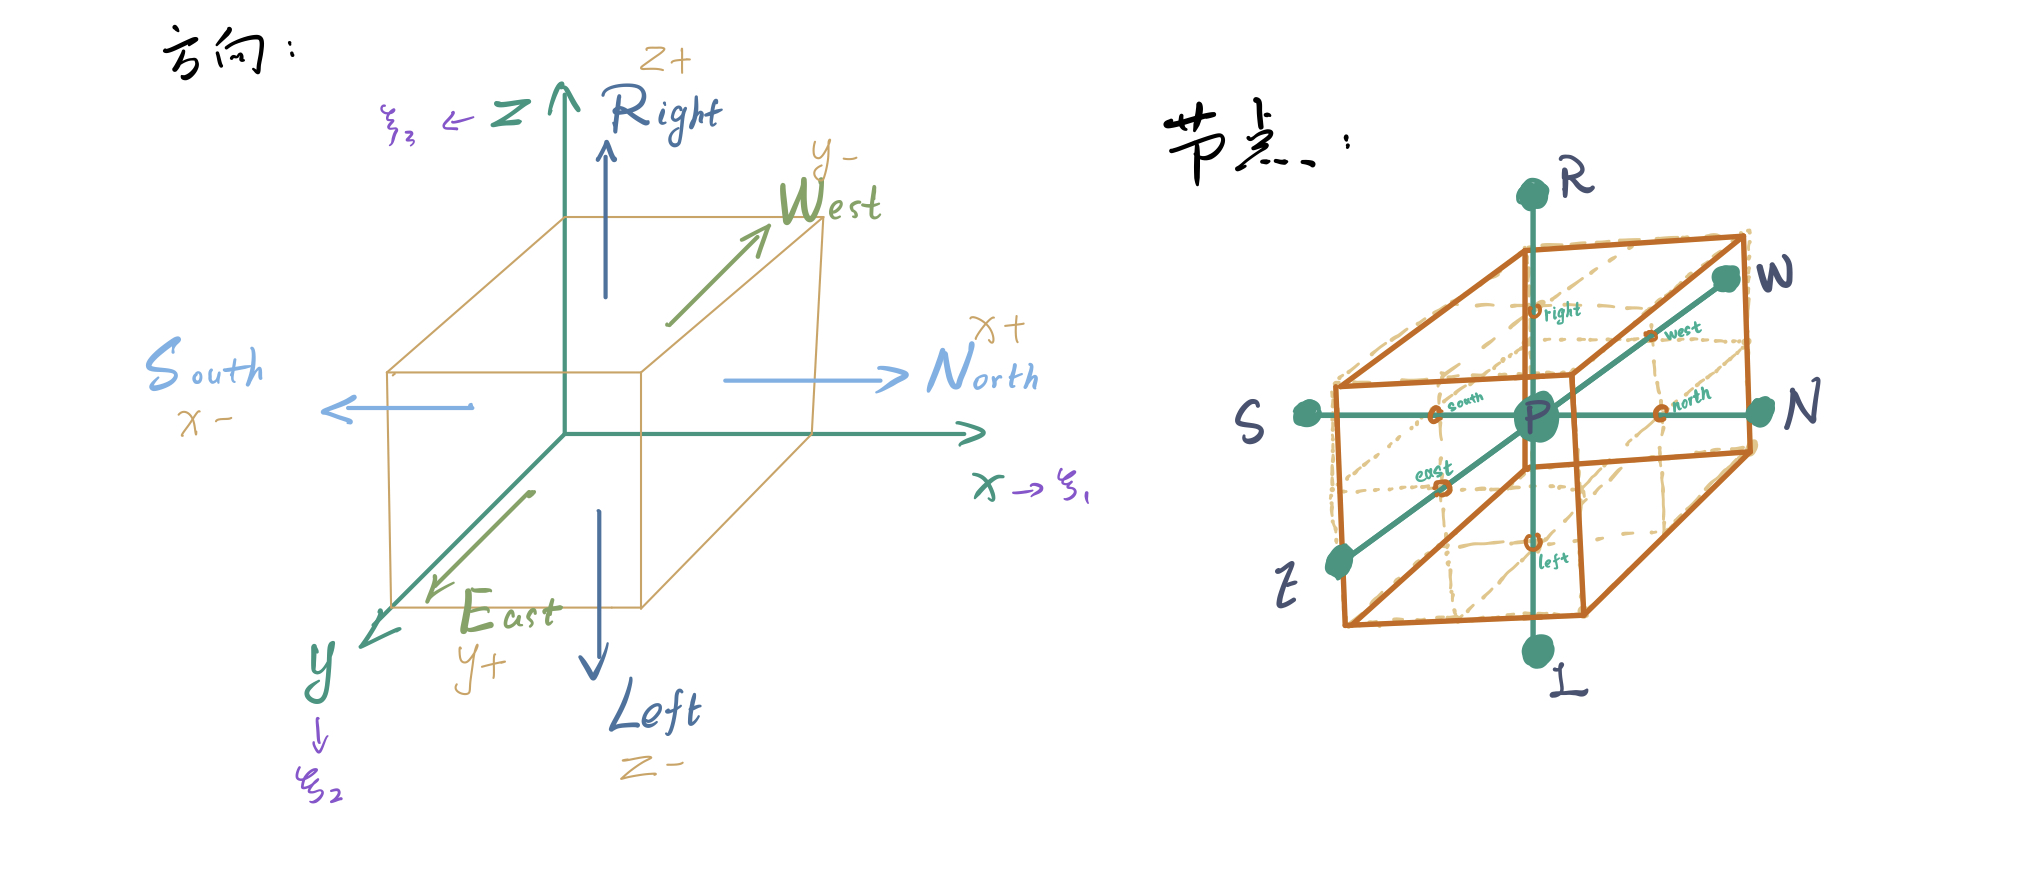 方向:
z+
ξ₃ ← z
Right
y-
West
x+
South
North
x-
x → ξ₁
East
y
y+
Left
↓
z-
ξ₂
节点:
R
W
right
west
S
south
P
north
N
east
E
left
L